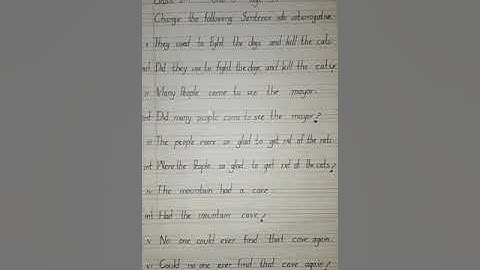 Change the following Sentence into interrogative.
They used to fight the dogs and kill the cats
int Did they use to fight the dogs and kill the cats?
Many People came to see the mayor.
int Did many people come to see the mayor?
iii The people were so glad to get rid of the rats
int Were the People so glad to get rid of the cats?
iv The mountain had a cave.
int Had the mountain cave?
v No one could ever find that cave again.
vi Could no one ever find that cave again?